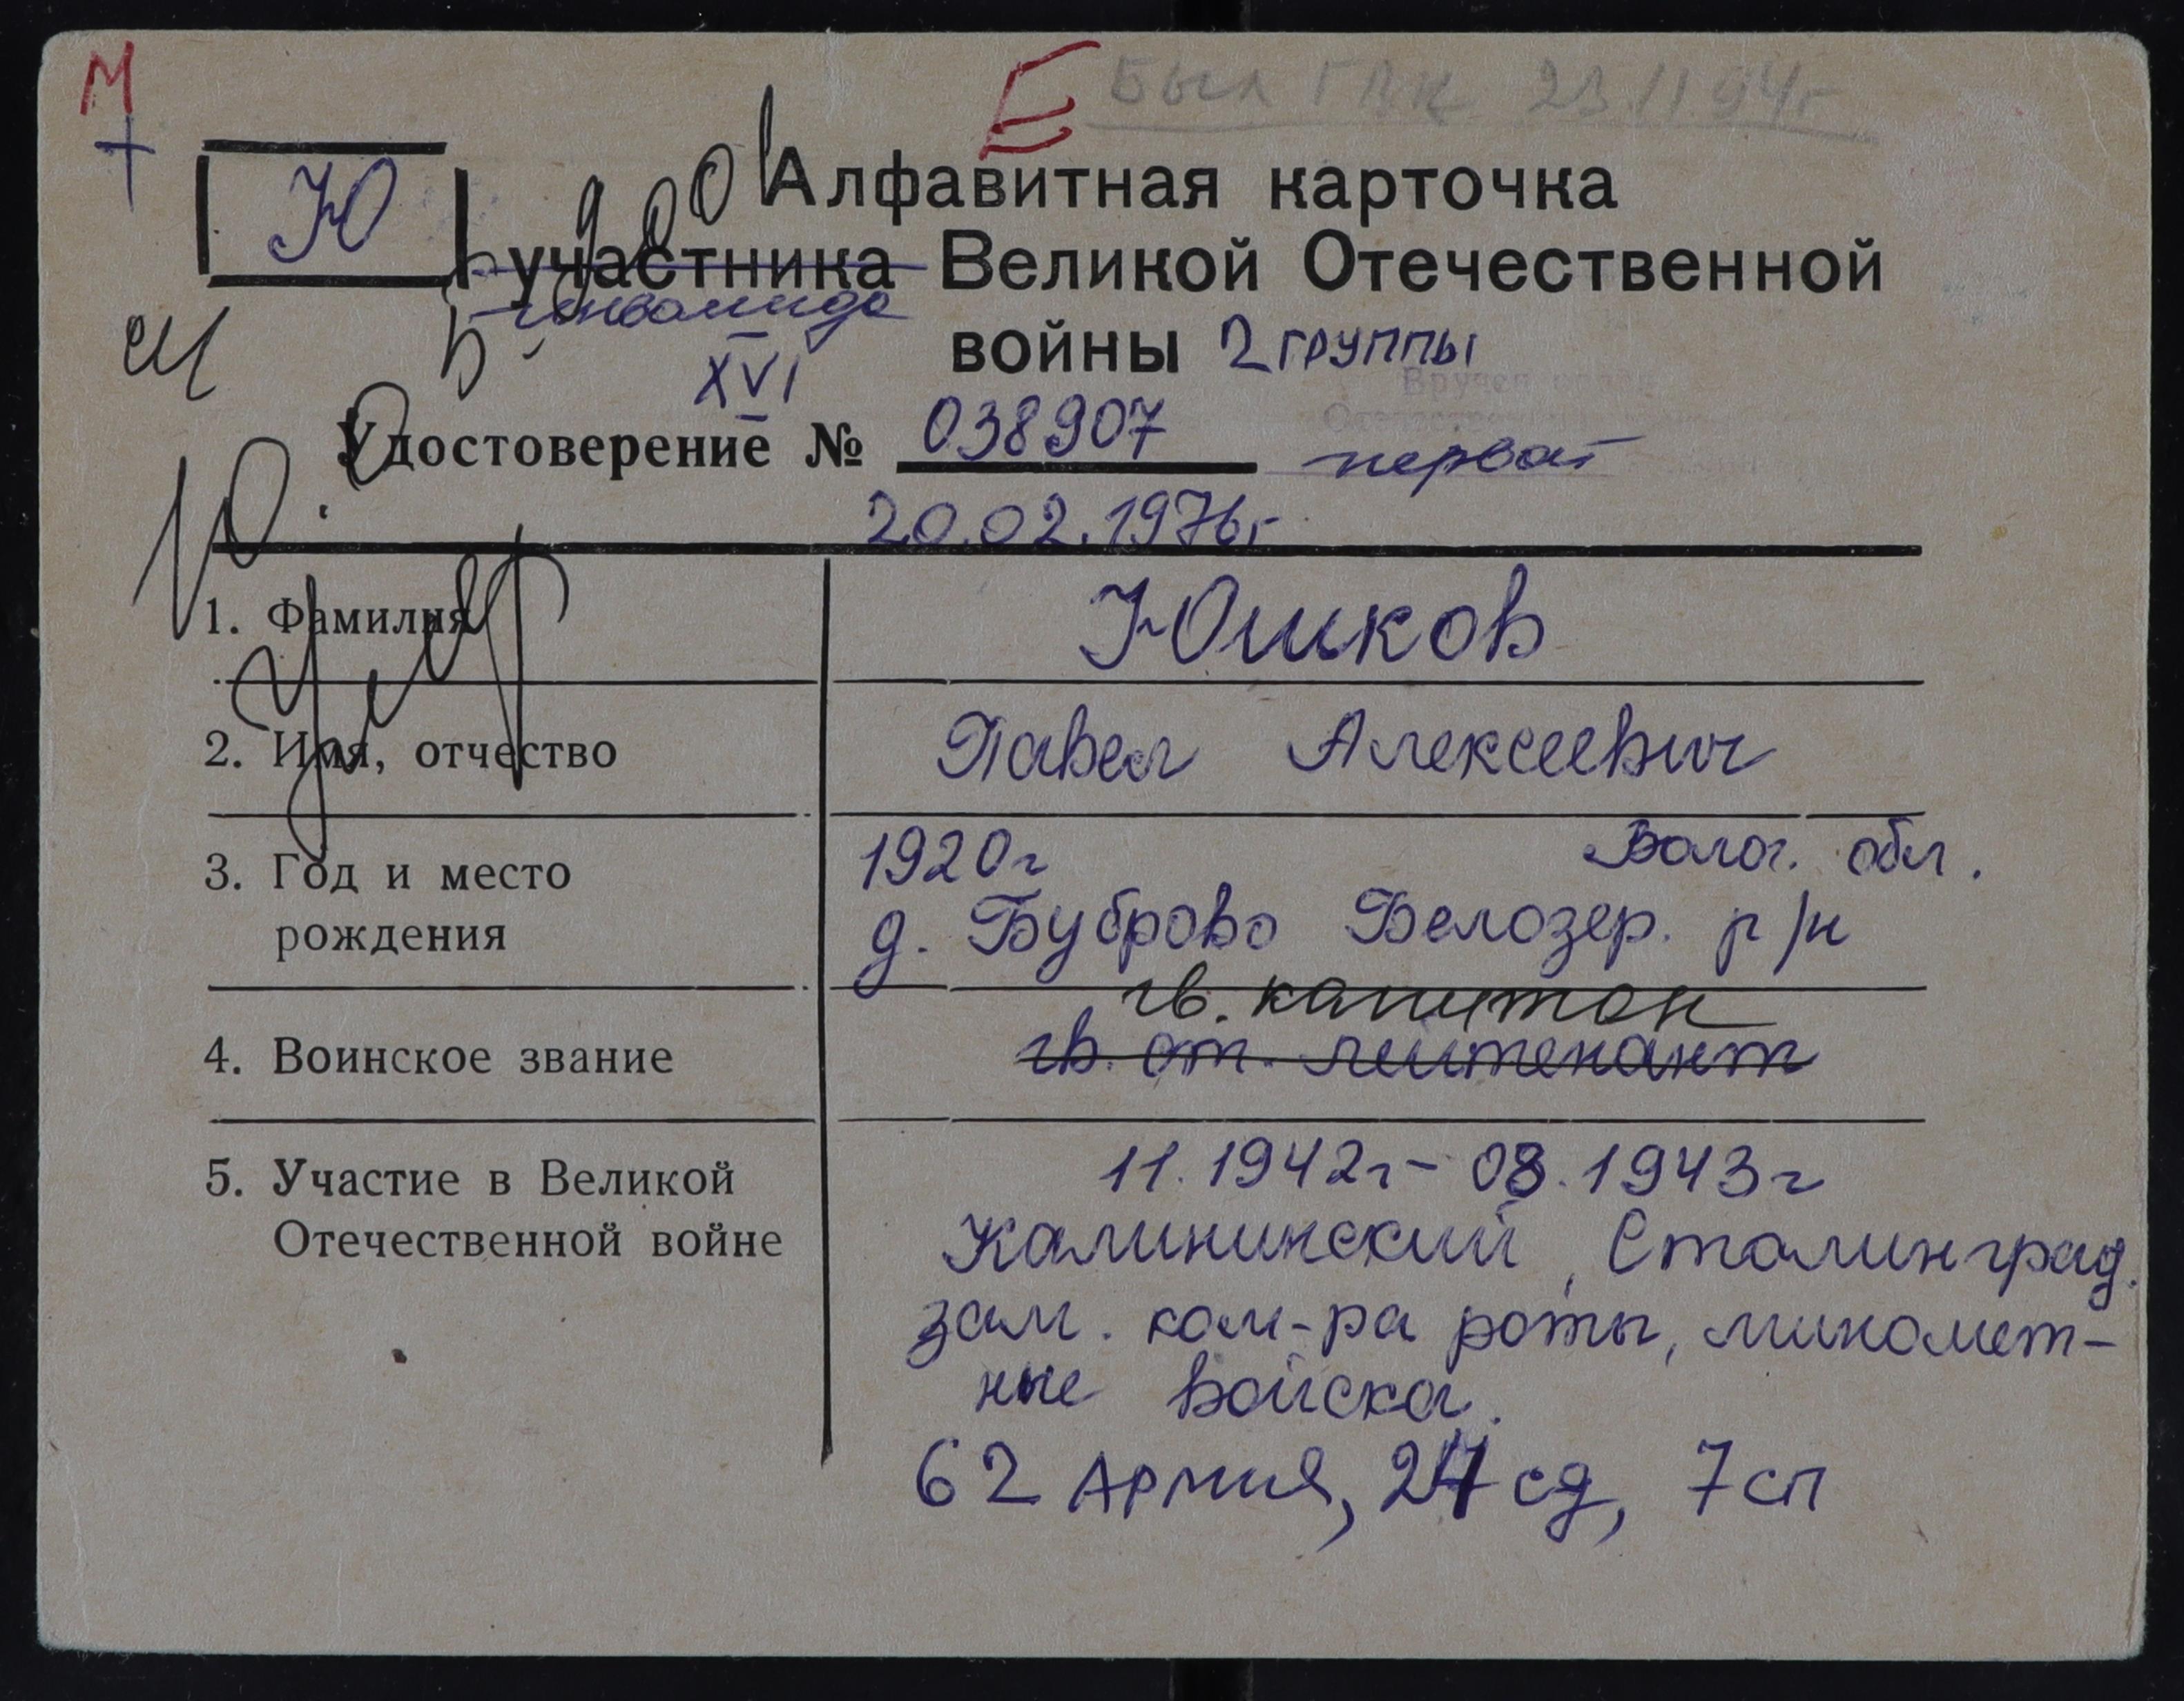 М
Е Был ГВК 23/11 94г
+
Ю
Алфавитная карточка
участника Великой Отечественной
инвалида
войны 2 группы
XVI
Вручен орден
Удостоверение № 038907
20.02.1976г
Умер
1. Фамилия Юшков
2. Имя, отчество Павел Алексеевич
3. Год и место 1920г Волог. обл.
рождения д. Буброво Белозер. р/н
гв. капитан
4. Воинское звание гв. ст. лейтенант
5. Участие в Великой 11.1942г - 08.1943г
Отечественной войне Калининский, Сталинград.
зам. ком-ра роты, миномет-
ные войска.
62 Армия, сд, 7 сп